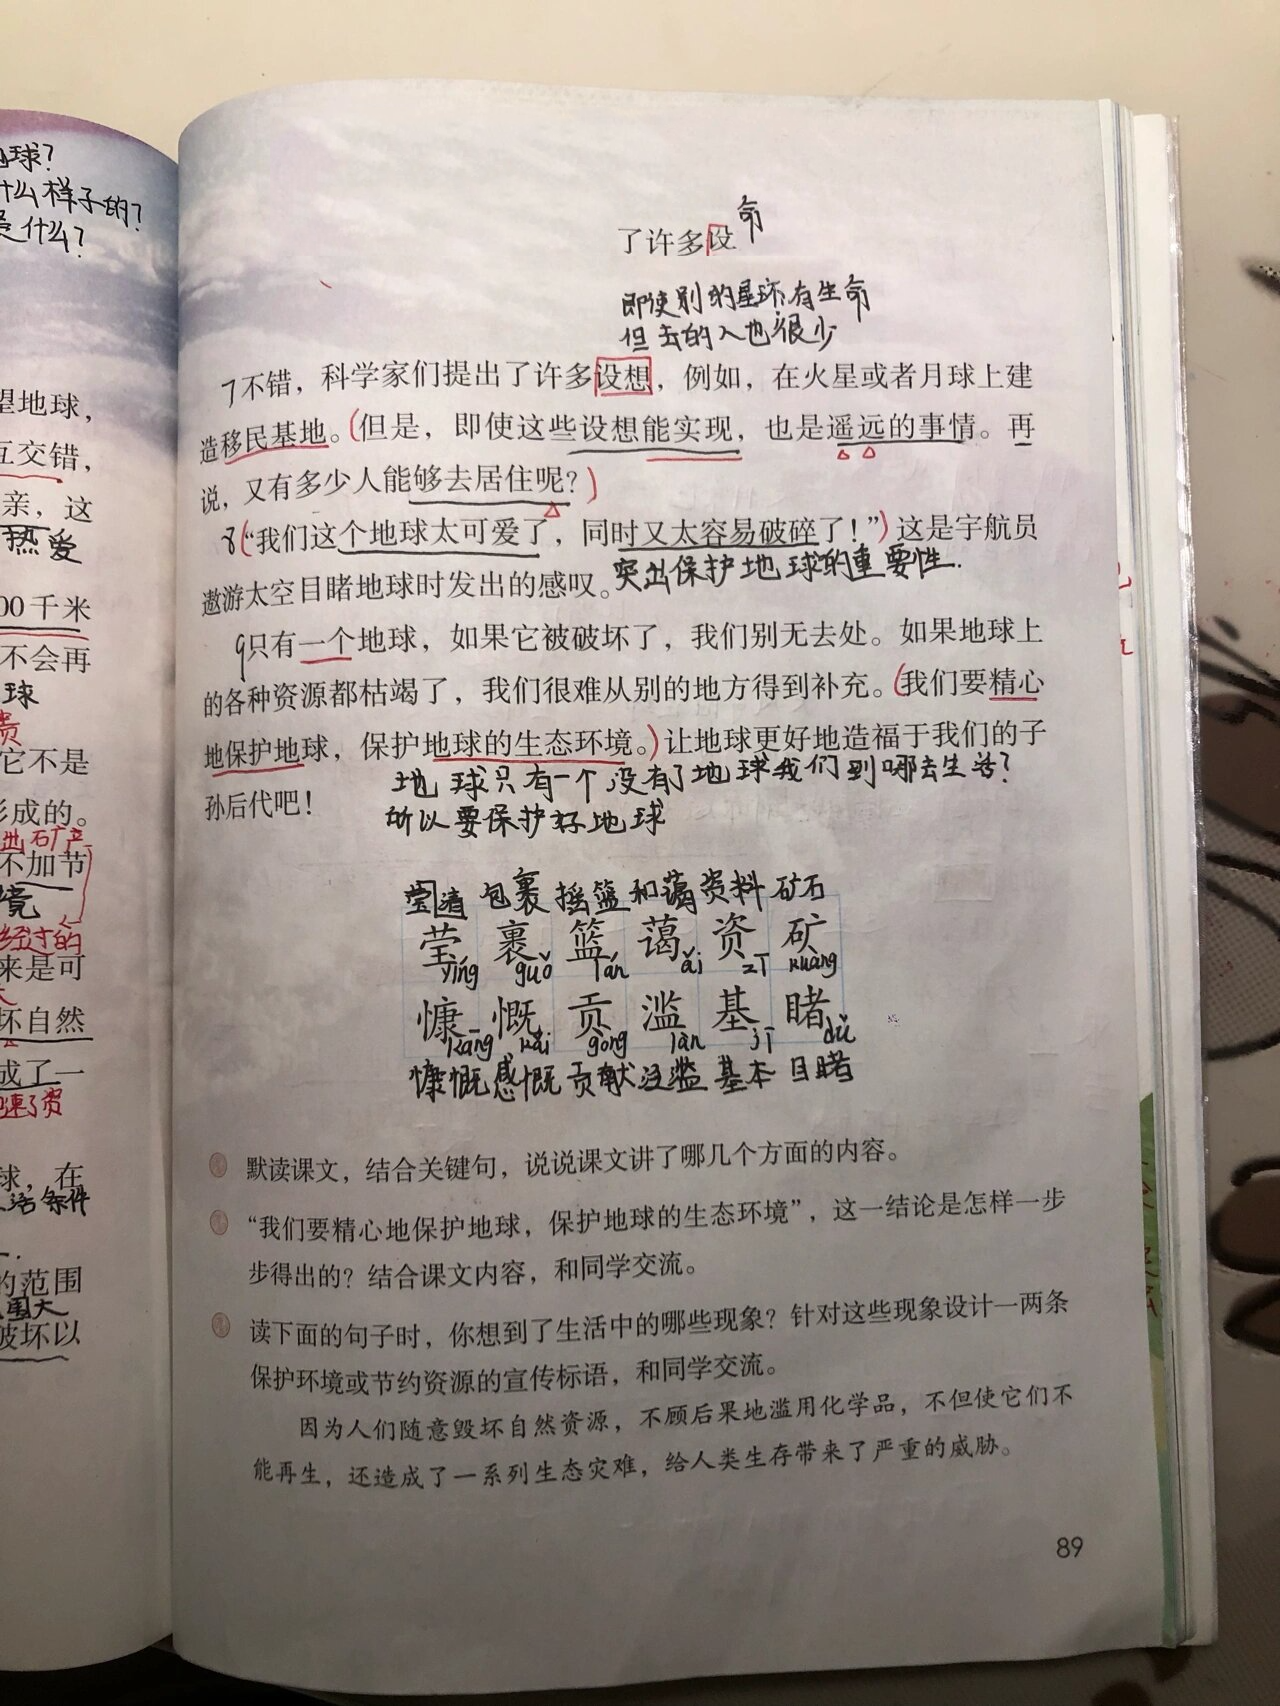 球?
什么样子的?
是什么?
望地球,
互交错,
亲,这
热爱
00千米
不会再
球
贵
它不是
形成的。
地矿产
不加节
境
经过的
来是可
坏自然
成了一
球,在
活条件
的范围
围大
破坏以
了许多设
命
即使别的星球有生命
但去的人也很少
7不错,科学家们提出了许多设想,例如,在火星或者月球上建
造移民基地。(但是,即使这些设想能实现,也是遥远的事情。再
说,又有多少人能够去居住呢?)
8(“我们这个地球太可爱了,同时又太容易破碎了!”)这是宇航员
遨游太空目睹地球时发出的感叹。突出保护地球的重要性.
9只有一个地球,如果它被破坏了,我们别无去处。如果地球上
的各种资源都枯竭了,我们很难从别的地方得到补充。(我们要精心
地保护地球,保护地球的生态环境。)让地球更好地造福于我们的子
孙后代吧!
地球只有一个没有了地球我们到哪去生活?
所以要保护好地球
莹清 包裹 摇篮 和蔼 资料 矿石
莹 裹 篮 蔼 资 矿
yíng guǒ lán ǎi zī kuàng
慷 慨 贡 滥 基 睹
kāng kǎi gòng làn jī dǔ
慷慨 感慨 贡献 泛滥 基本 目睹
默读课文,结合关键句,说说课文讲了哪几个方面的内容。
“我们要精心地保护地球,保护地球的生态环境”,这一结论是怎样一步
步得出的?结合课文内容,和同学交流。
读下面的句子时,你想到了生活中的哪些现象?针对这些现象设计一两条
保护环境或节约资源的宣传标语,和同学交流。
因为人们随意毁坏自然资源,不顾后果地滥用化学品,不但使它们不
能再生,还造成了一系列生态灾难,给人类生存带来了严重的威胁。
89